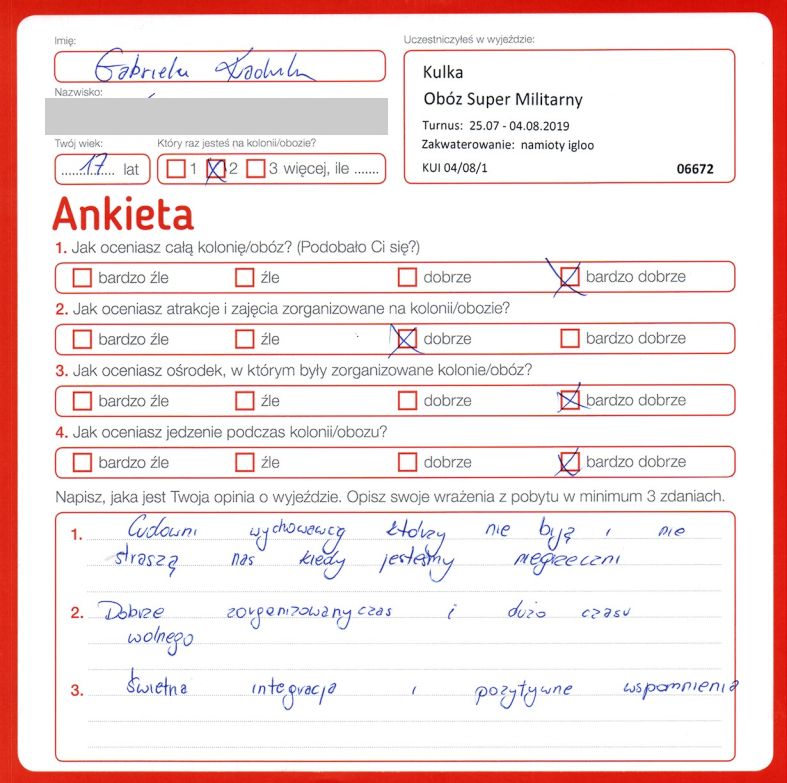 Imię:
Gabriela
Nazwisko:
Twój wiek:
17 lat
Który raz jesteś na kolonii/obozie?
1 2 3 więcej, ile .......
Uczestniczyłeś w wyjeździe:
Kulka
Obóz Super Militarny
Turnus: 25.07 - 04.08.2019
Zakwaterowanie: namioty igloo
KUI 04/08/1 06672
Ankieta
1. Jak oceniasz całą kolonię/obóz? (Podobało Ci się?)
bardzo źle źle dobrze bardzo dobrze
2. Jak oceniasz atrakcje i zajęcia zorganizowane na kolonii/obozie?
bardzo źle źle dobrze bardzo dobrze
3. Jak oceniasz ośrodek, w którym były zorganizowane kolonie/obóz?
bardzo źle źle dobrze bardzo dobrze
4. Jak oceniasz jedzenie podczas kolonii/obozu?
bardzo źle źle dobrze bardzo dobrze
Napisz, jaka jest Twoja opinia o wyjeździe. Opisz swoje wrażenia z pobytu w minimum 3 zdaniach.
1. Cudowni wychowawcy którzy nie byją i nie
straszą nas kiedy jesteśmy niegrzeczni
2. Dobrze zorganizowany czas i dużo czasu
wolnego
3. Świetna integracja i pozytywne wspomnienia